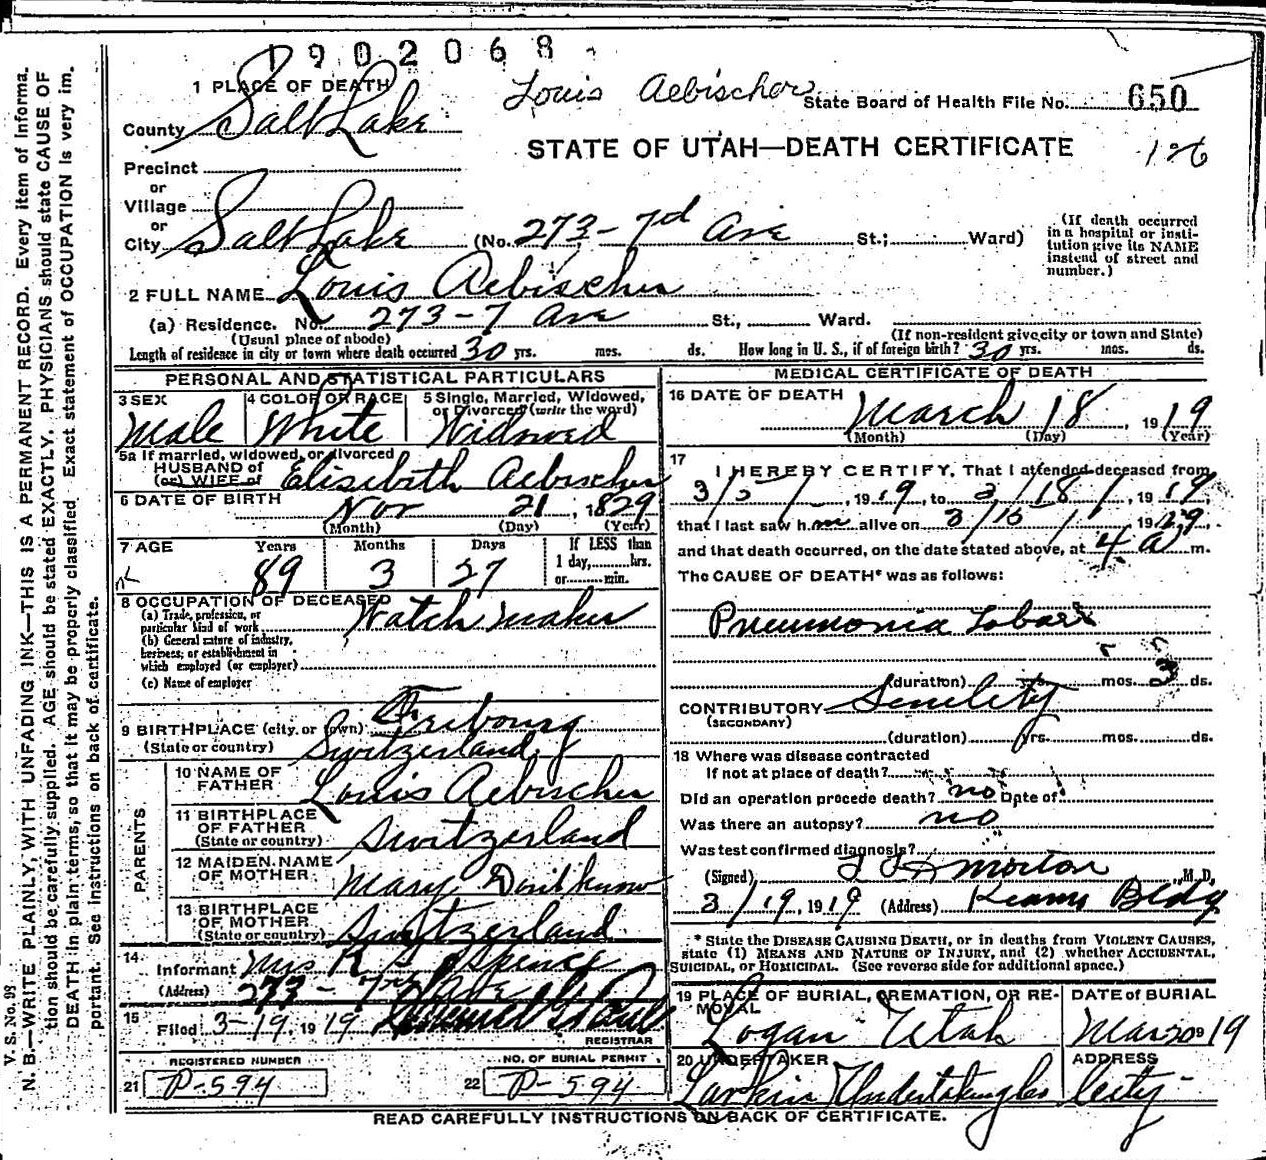 1902068
1 PLACE OF DEATH Louis Aebischer State Board of Health File No. 650
County Salt Lake
STATE OF UTAH—DEATH CERTIFICATE 126
Precinct
or
Village
or
City Salt Lake (No. 273-7d Ave St.; Ward) (If death occurred in a hospital or insti- tution give its NAME instead of street and number.)
2 FULL NAME Louis Aebischer
(a) Residence. No. 273-7 Ave St., Ward.
(Usual place of abode) (If non-resident give city or town and State)
Length of residence in city or town where death occurred 30 yrs. mos. ds. How long in U. S., if of foreign birth? 30 yrs. mos. ds.
PERSONAL AND STATISTICAL PARTICULARS
3 SEX 4 COLOR OR RACE 5 Single, Married, Widowed,
or Divorced (write the word)
Male White Widowed
5a If married, widowed, or divorced
HUSBAND of
(or) WIFE of Elisebeth Aebischer
6 DATE OF BIRTH Nov 21, 1829
(Month) (Day) (Year)
7 AGE Years Months Days If LESS than
1 day, hrs.
89 3 27 or min.
8 OCCUPATION OF DECEASED
(a) Trade, profession, or
particular kind of work Watch maker
(b) General nature of industry,
business, or establishment in
which employed (or employer)
(c) Name of employer
9 BIRTHPLACE (city, or town) Fribourg
(State or country) Switzerland
PARENTS
10 NAME OF
FATHER Louis Aebischer
11 BIRTHPLACE
OF FATHER
(State or country) Switzerland
12 MAIDEN NAME
OF MOTHER Mary Dont know
13 BIRTHPLACE
OF MOTHER
(State or country) Switzerland
14 Informant Mrs K S Spence
(Address) 273 - 7th Ave
15 Filed 3-19, 1919
REGISTRAR
REGISTERED NUMBER NO. OF BURIAL PERMIT
21 P-594 22 P-594
MEDICAL CERTIFICATE OF DEATH
16 DATE OF DEATH
March 18, 1919
(Month) (Day) (Year)
17
I HEREBY CERTIFY, That I attended deceased from
3/5/, 1919, to 3/18/, 1919,
that I last saw h m alive on 3/15/ 1919,
and that death occurred, on the date stated above, at 4 a m.
The CAUSE OF DEATH* was as follows:
Pneumonia Lobar
(duration) yrs. mos. 3 ds.
CONTRIBUTORY Senility
(SECONDARY)
(duration) yrs. mos. ds.
18 Where was disease contracted
If not at place of death?
Did an operation procede death? no Date of
Was there an autopsy? no
Was test confirmed diagnosis?
(Signed) Morton M.D.
3/19, 1919 (Address) Kearns Bldg
* State the DISEASE CAUSING DEATH, or in deaths from VIOLENT CAUSES,
state (1) MEANS AND NATURE OF INJURY, and (2) whether ACCIDENTAL,
SUICIDAL, or HOMICIDAL. (See reverse side for additional space.)
19 PLACE OF BURIAL, CREMATION, OR RE- DATE of BURIAL
MOVAL
Logan Utah Mar 20 1919
20 UNDERTAKER ADDRESS
Larkin Undertaking Co City
READ CAREFULLY INSTRUCTIONS ON BACK OF CERTIFICATE.
V. S. No. 98
N. B.—WRITE PLAINLY, WITH UNFADING INK—THIS IS A PERMANENT RECORD. Every item of informa-
tion should be carefully supplied. AGE should be stated EXACTLY. PHYSICIANS should state CAUSE OF
DEATH in plain terms, so that it may be properly classified. Exact statement of OCCUPATION is very im-
portant. See instructions on back of certificate.